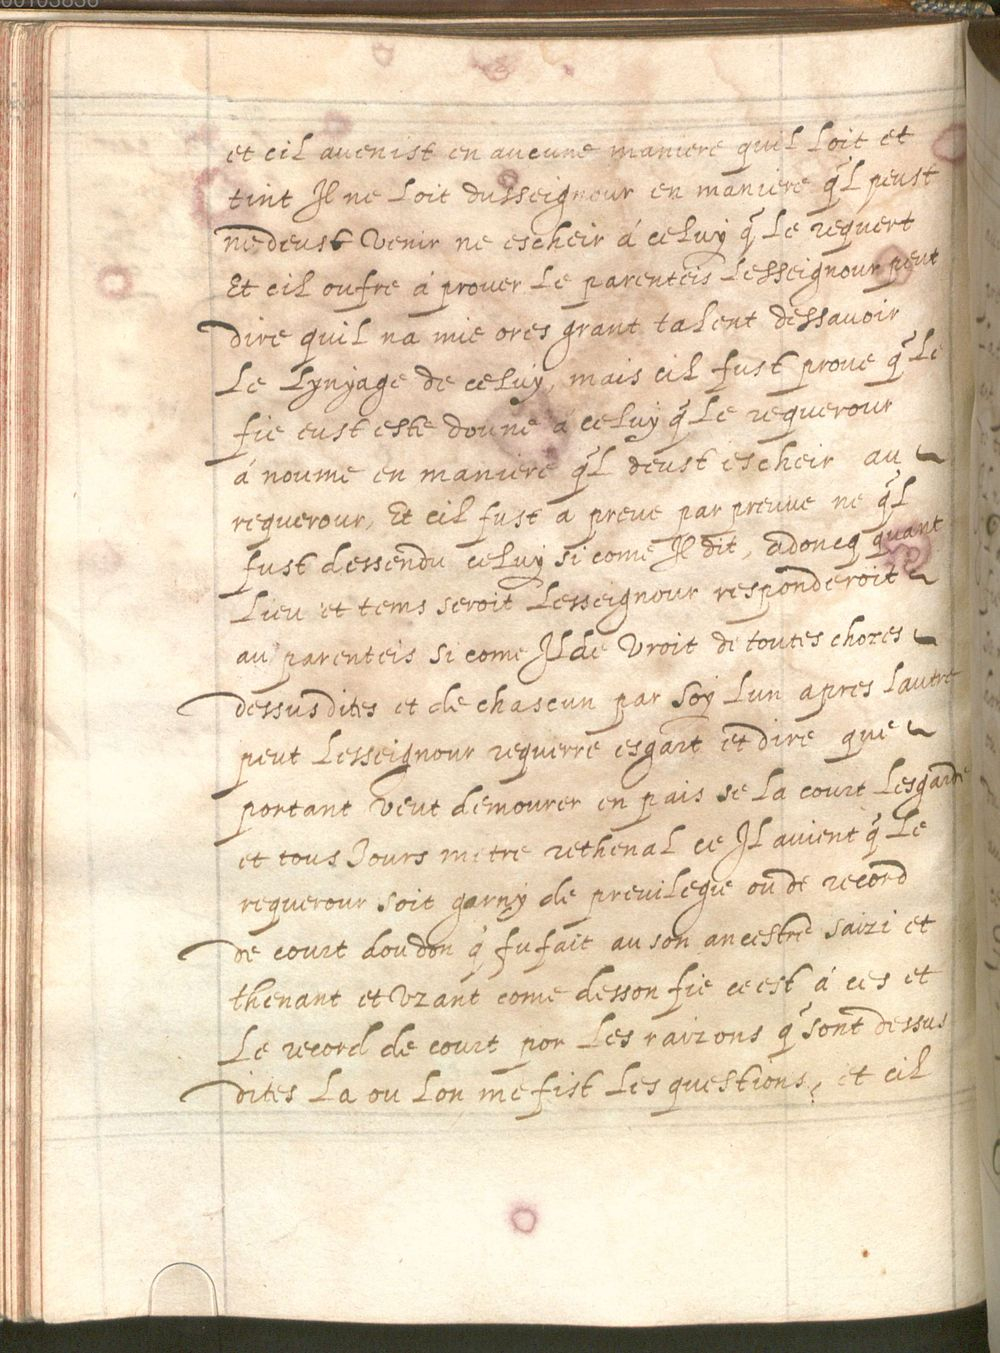 00103858
et cil auenist en aucune maniere quil loit et
tint Il ne loit dusseignour en maniere q̃l peust
nedeust venir ne escheir á celuy q̃ le requert
Et cil oufre á prouer le parenteis lesseignour peut
dire quil na mie ores grant talent dessauoir
le lynyage de celuy, mais cil fust proue q̃ le
fie eust este donne á celuy q̃ le requerour
á noume en maniere q̃l deust escheir au
requerour, Et cil fust a preue par preuue ne q̃l
fust dessendu celuy si come Il dit, adoncq quant
lieu et tems seroit lesseignour responderoit
au parenteis si come Il de vroit de toutes chozes
dessusdites et de chascun par soy lun apres lautre
peut lesseignour requerre esgart et dire que
portant veut demourer en pais se la court lesgarde
et tous Jours metre rethenal ce Il auient q̃ le
requerour soit garny de preuilegie ou de record
de court doudon q̃ fu fait au son ancestre saizi et
thenant et vzant come desson fie ce est á ces et
le record de court por les raizons q̃ sont dessus
dites la ou lon me fist les questions, et cil